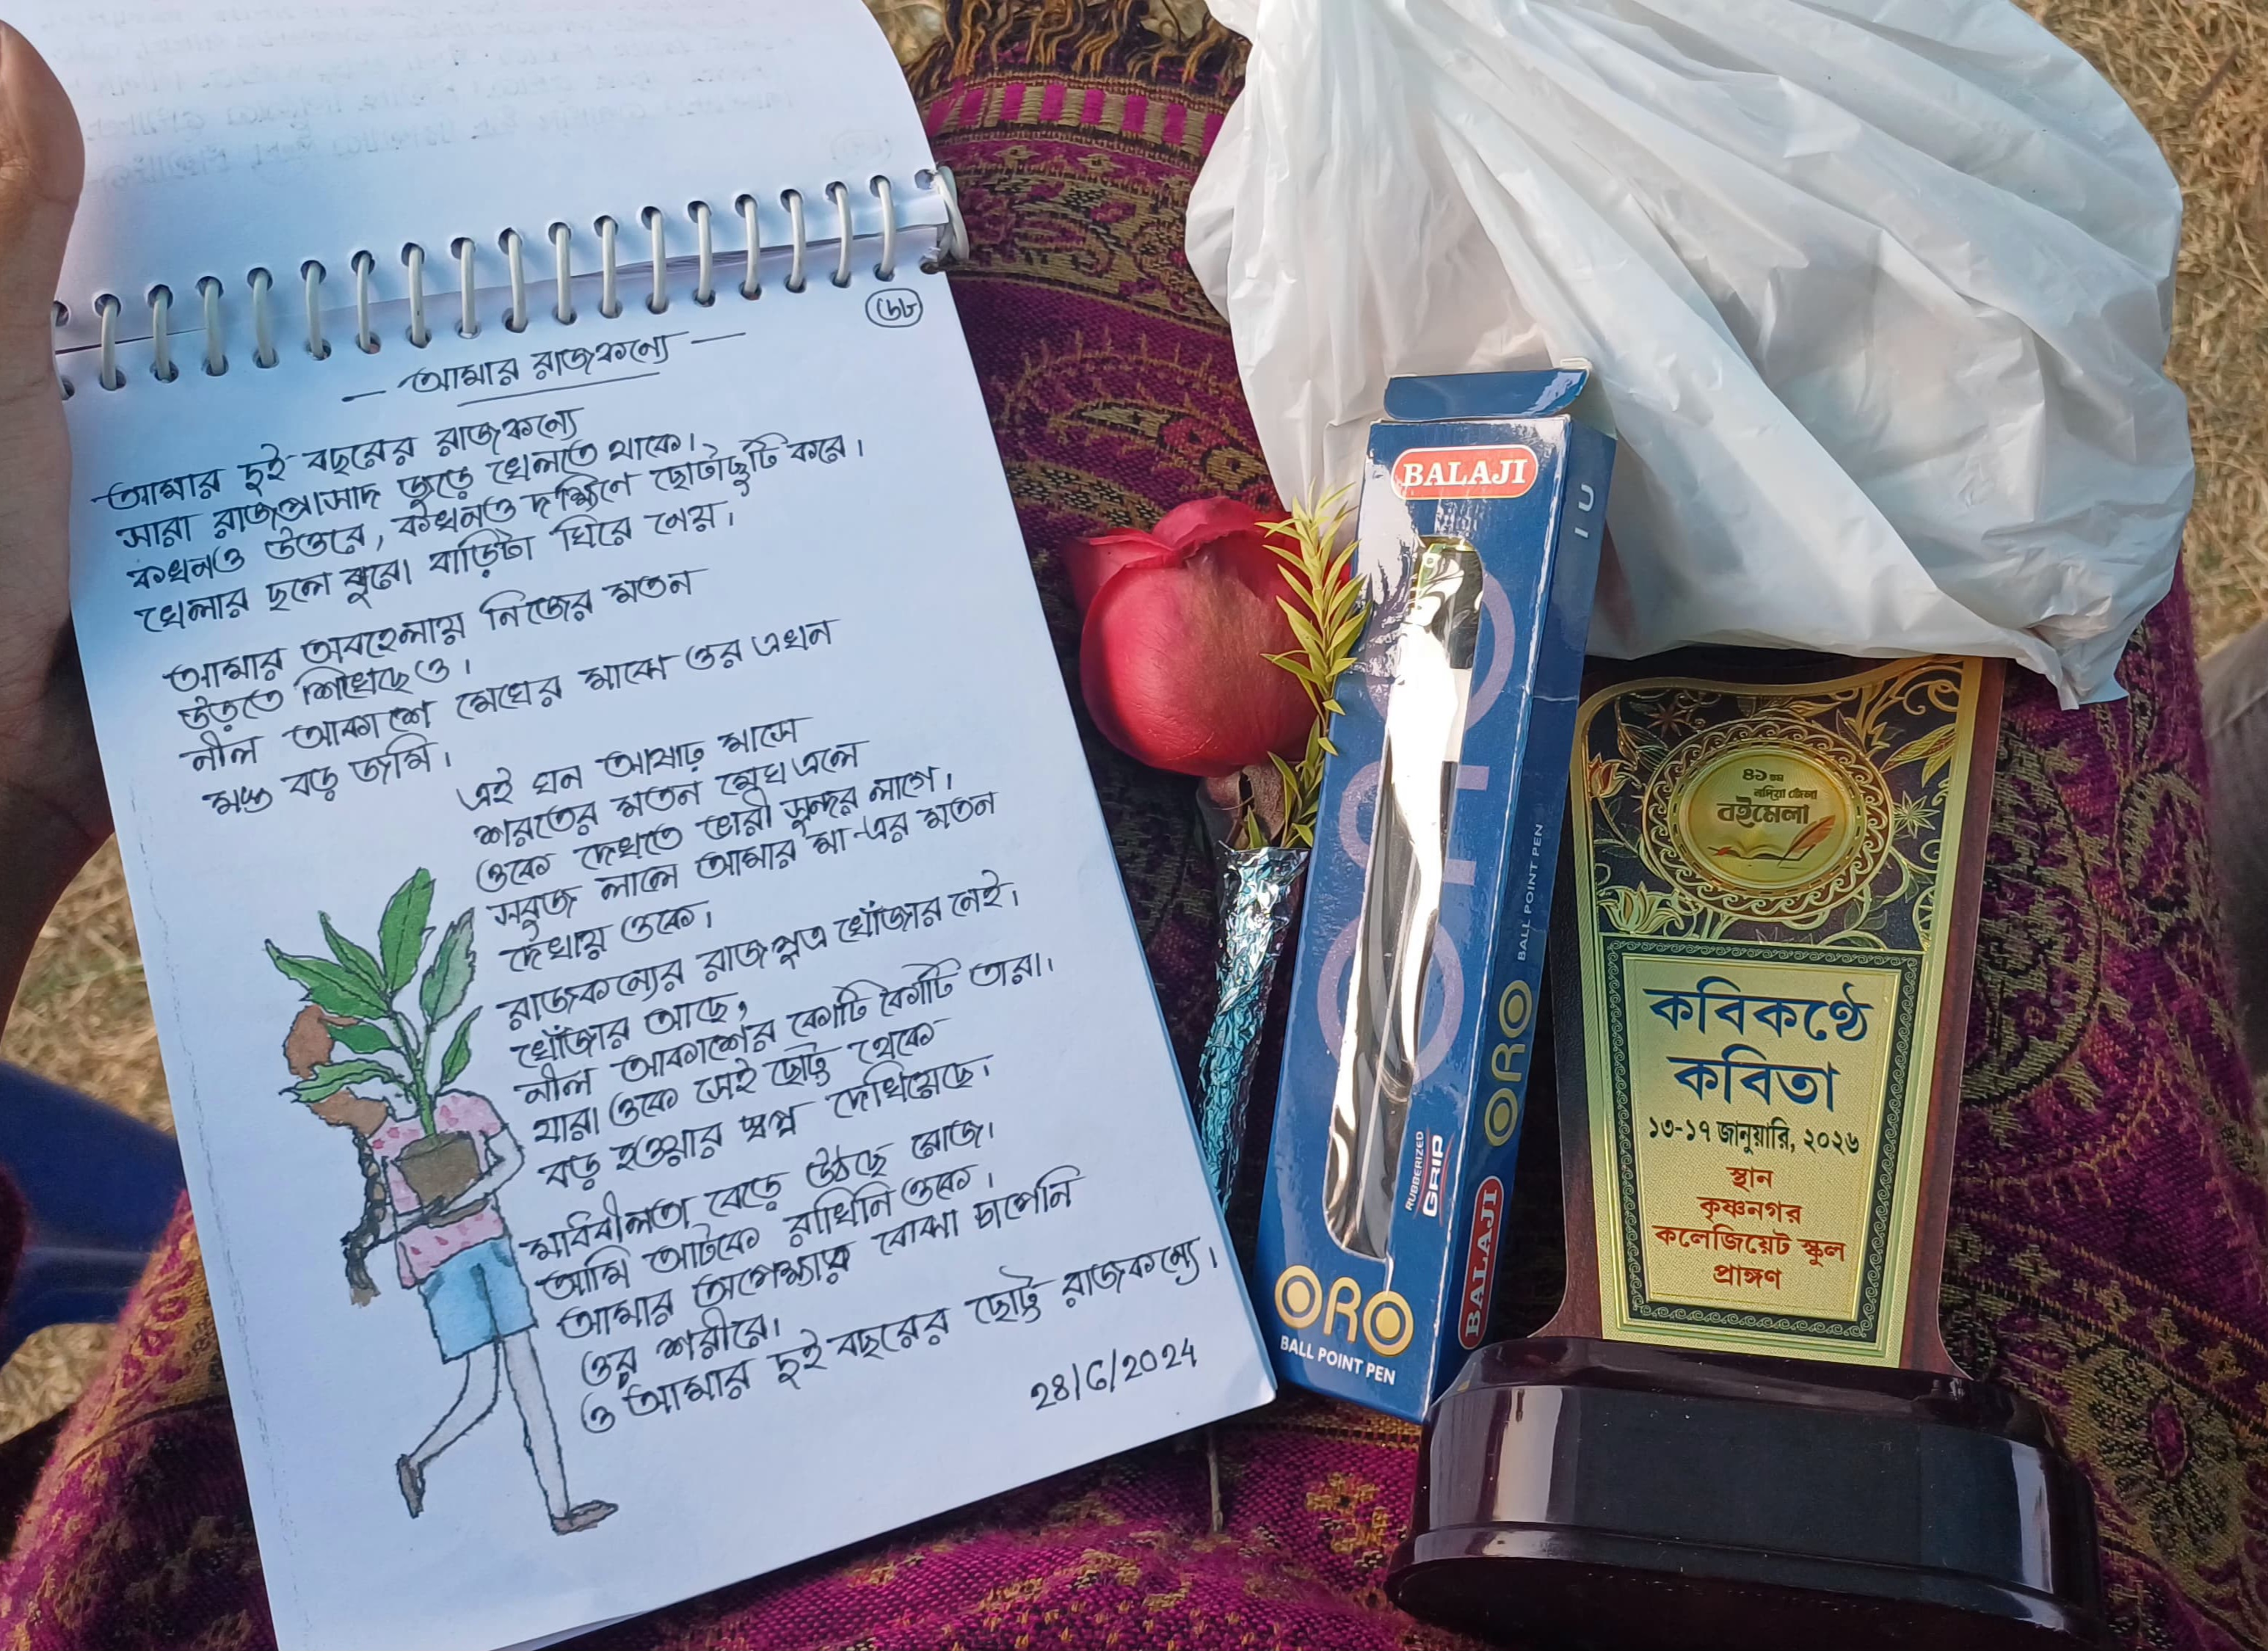 ৬৮
— আমার রাজকন্যে —
আমার দুই বছরের রাজকন্যে
সারা রাজপ্রাসাদ জুড়ে খেলতে থাকে।
কখনও উত্তরে, কখনও দক্ষিণে ছোটাছুটি করে।
খেলার ছলে পুরো বাড়িটা ঘিরে নেয়।
আমার অবহেলায় নিজের মতন
উড়তে শিখেছে ও।
নীল আকাশে মেঘের মাঝে ওর এখন
মস্ত বড় জমি।
এই ঘন আষাঢ় মাসে
শরতের মতন মেঘ এলে
ওকে দেখতে ভারী সুন্দর লাগে।
সবুজ লালে আমার মা-এর মতন
দেখায় ওকে।
রাজকন্যের রাজপুত্র খোঁজার নেই।
খোঁজার আছে,
নীল আকাশের কোটি কোটি তারা।
যারা ওকে সেই ছোট্ট থেকে
বড় হওয়ার স্বপ্ন দেখিয়েছে।
মাধবীলতা বেড়ে উঠছে রোজ।
আমি আটকে রাখিনি ওকে।
আমার অপেক্ষার বোঝা চাপেনি
ওর শরীরে।
ও আমার দুই বছরের ছোট্ট রাজকন্যে।
২৪/৬/২০২৪
BALAJI
ORO
BALL POINT PEN
RUBBERIZED
GRIP
ORO
BALL POINT PEN
BALAJI
৪১ তম
নদিয়া জেলা
বইমেলা
কবিকণ্ঠে
কবিতা
১৩-১৭ জানুয়ারি, ২০২৬
স্থান
কৃষ্ণনগর
কলেজিয়েট স্কুল
প্রাঙ্গণ